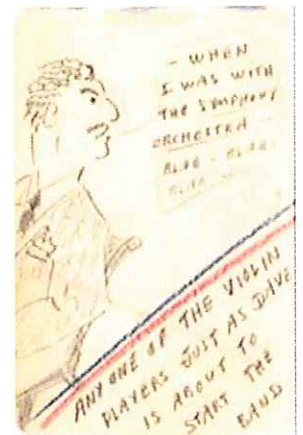 - WHEN
I WAS WITH
THE SYMPHONY
ORCHESTRA -
BLAB - BLAB -
BLAB -
ANY ONE OF THE VIOLIN
PLAYERS JUST AS DAVE
IS ABOUT TO
START THE
BAND